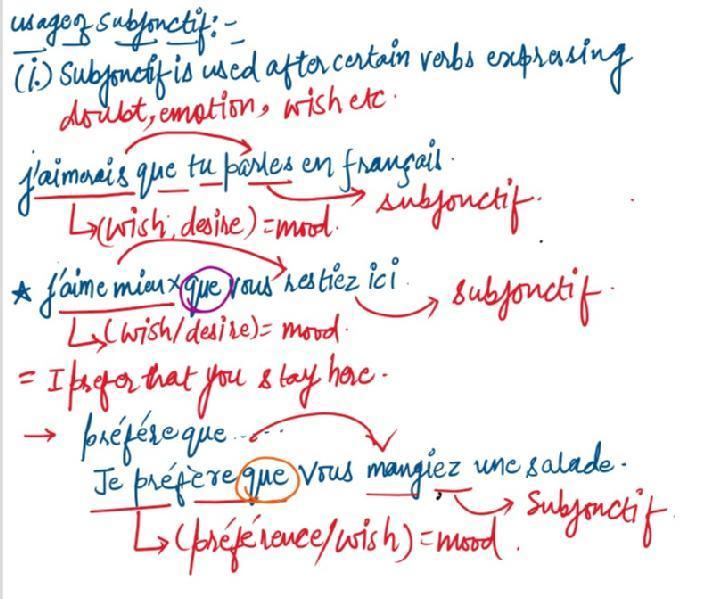 usage of subjonctif:-
(i.) Subjonctif is used after certain verbs exprssing
doubt, emotion, wish etc.
j'aimerais que tu parles en français.
↳(wish, desire) = mood. → subjonctif.
★ j'aime mieux que vous restiez ici. → subjonctif.
↳(wish/desire) = mood.
= I prefer that you stay here.
→ préfére que ....
Je préfère que vous mangiez une salade.
→ Subjonctif.
↳(préférence/wish) = mood.